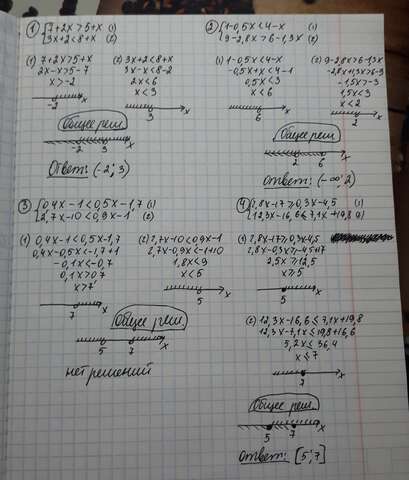 ① {7+2x>5+x (1)
{3x+2<8+x (2)
(1) 7+2x>5+x
2x-x>5-7
x>-2
-2 x
(2) 3x+2<8+x
3x-x<8-2
2x<6
x<3
3 x
Общее реш.
-2 3 x
Ответ: (-2; 3)
② {1-0,5x<4-x (1)
{9-2,8x>6-1,3x (2)
(1) 1-0,5x<4-x
-0,5x+x<4-1
0,5x<3
x<6
6 x
(2) 9-2,8x>6-1,3x
-2,8x+1,3x>6-9
-1,5x>-3
1,5x<3
x<2
2 x
Общее реш.
2 6 x
Ответ: (-∞; 2)
③ {0,4x-1<0,5x-1,7 (1)
{2,7x-10<0,9x-1 (2)
(1) 0,4x-1<0,5x-1,7
0,4x-0,5x<-1,7+1
-0,1x<-0,7
0,1x>0,7
x>7
7 x
(2) 2,7x-10<0,9x-1
2,7x-0,9x<-1+10
1,8x<9
x<5
5 x
Общее реш.
5 7 x
нет решений
④ {2,8x-17≥0,3x-4,5 (1)
{12,3x-16,6≤7,1x+19,8 (2)
(1) 2,8x-17≥0,3x-4,5
2,8x-0,3x≥-4,5+17
2,5x≥12,5
x≥5
5 x
(2) 12,3x-16,6≤7,1x+19,8
12,3x-7,1x≤19,8+16,6
5,2x≤36,4
x≤7
7 x
Общее реш.
5 7 x
Ответ: [5; 7]